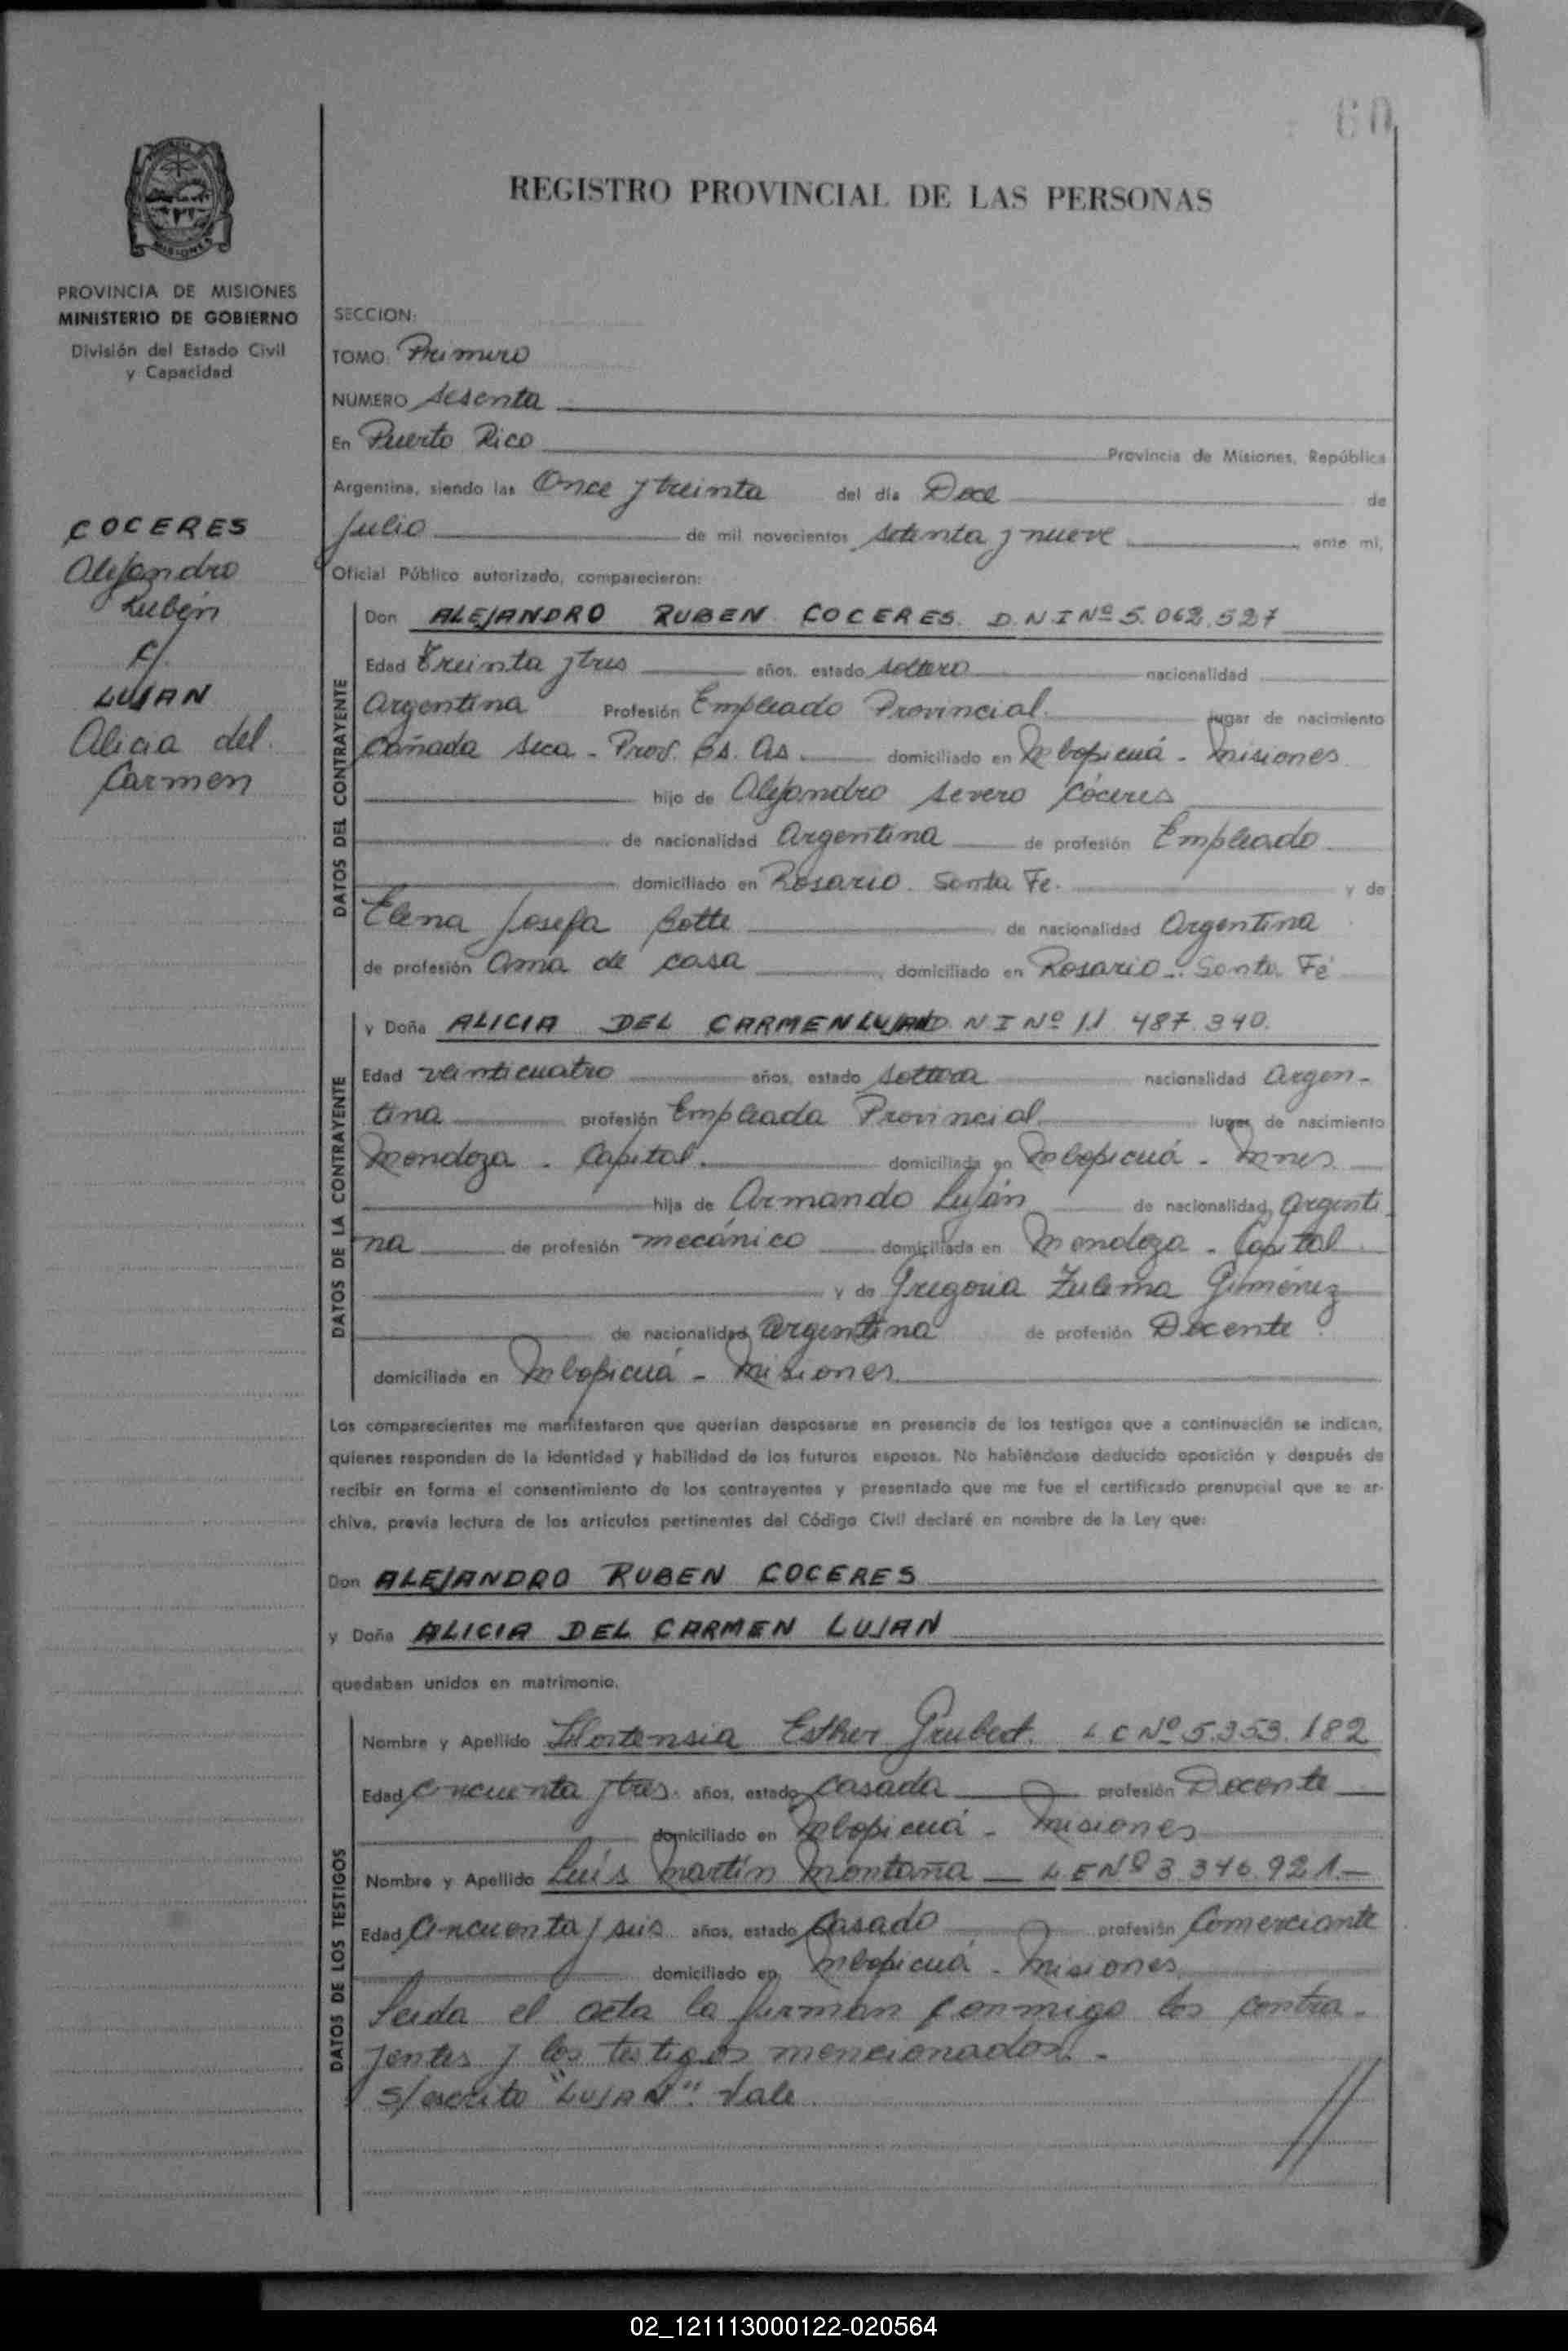 60
REGISTRO PROVINCIAL DE LAS PERSONAS
MISIONES
PROVINCIA DE MISIONES
MINISTERIO DE GOBIERNO
División del Estado Civil
y Capacidad
COCERES
Alejandro
Rubén
c/.
LUJAN
Alicia del
Carmen
SECCION:
TOMO: Primero
NUMERO Sesenta
En Puerto Rico Provincia de Misiones, República
Argentina, siendo las Once y treinta del día Doce de
Julio de mil novecientos setenta y nueve ante mí,
Oficial Público autorizado, comparecieron:
DATOS DEL CONTRAYENTE
Don ALEJANDRO RUBEN COCERES. D.N.I Nº 5.062.527
Edad Treinta y tres años, estado soltero nacionalidad
Argentina Profesión Empleado Provincial. lugar de nacimiento
Cañada Seca - Prov. Bs. As. domiciliado en Mbopicuá - Misiones
hijo de Alejandro Severo Cóceres
de nacionalidad Argentina de profesión Empleado
domiciliado en Rosario. Santa Fe. y de
Elena Josefa Botte de nacionalidad Argentina
de profesión Ama de casa domiciliado en Rosario - Santa Fé
DATOS DE LA CONTRAYENTE
y Doña ALICIA DEL CARMEN LUJAN D N I Nº 11 487.340.
Edad veinticuatro años, estado soltera nacionalidad Argen-
tina profesión Empleada Provincial lugar de nacimiento
Mendoza - Capital. domiciliada en Mbopicuá - Mnes
hija de Armando Luján de nacionalidad Argenti
na de profesión mecánico domiciliada en Mendoza - Capital
y de Gregoria Zulema Giménez
de nacionalidad Argentina de profesión Docente
domiciliada en Mbopicuá - Misiones
Los comparecientes me manifestaron que querían desposarse en presencia de los testigos que a continuación se indican,
quienes responden de la identidad y habilidad de los futuros esposos. No habiéndose deducido oposición y después de
recibir en forma el consentimiento de los contrayentes y presentado que me fue el certificado prenupcial que se ar-
chiva, previa lectura de los artículos pertinentes del Código Civil declaré en nombre de la Ley que:
Don ALEJANDRO RUBEN COCERES
y Doña ALICIA DEL CARMEN LUJAN
quedaban unidos en matrimonio.
DATOS DE LOS TESTIGOS
Nombre y Apellido Hortensia Esther Grubert. L C Nº 5.353.182
Edad Cincuenta y tres años, estado Casada profesión Docente
domiciliado en Mbopicuá - Misiones
Nombre y Apellido Luis Martín Montaña L E Nº 3.346.921.-
Edad Cincuenta y seis años, estado Casado profesión Comerciante
domiciliado en Mbopicuá - Misiones
Leída el acta la firman conmigo los contra-
yentes y los testigos mencionados.-
S/escrito "LUJAN". Vale
02_121113000122-020564